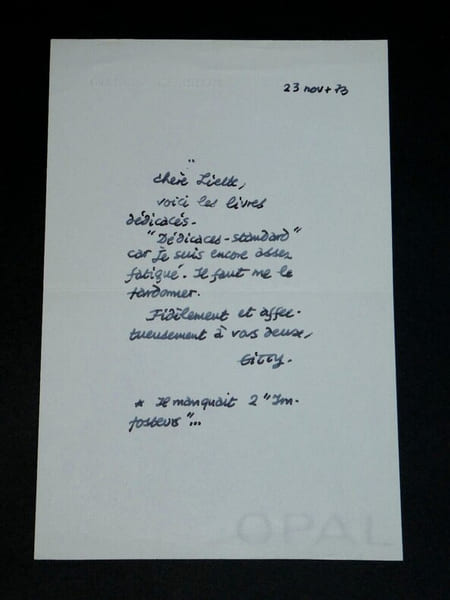 23 nov + 73
"
Chère Liette,
voici les livres
dédicacés.
"Dédicaces-standard"
car je suis encore assez
fatigué. Il faut me le
pardonner.
Fidèlement et affec-
tueusement à vous deux,
* Il manquait 2 "Im-
posteurs"...
OPAL